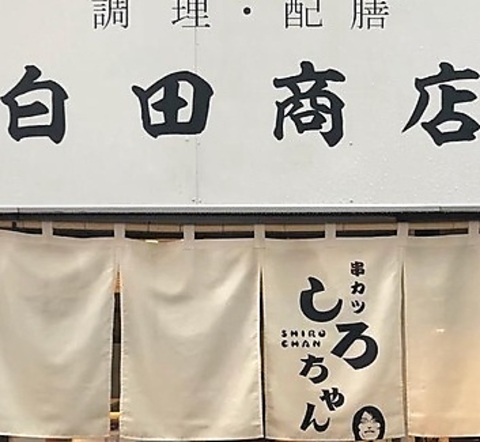 調理・配膳
白田商店
串カツ
しろちゃん
SHIRO
CHAN